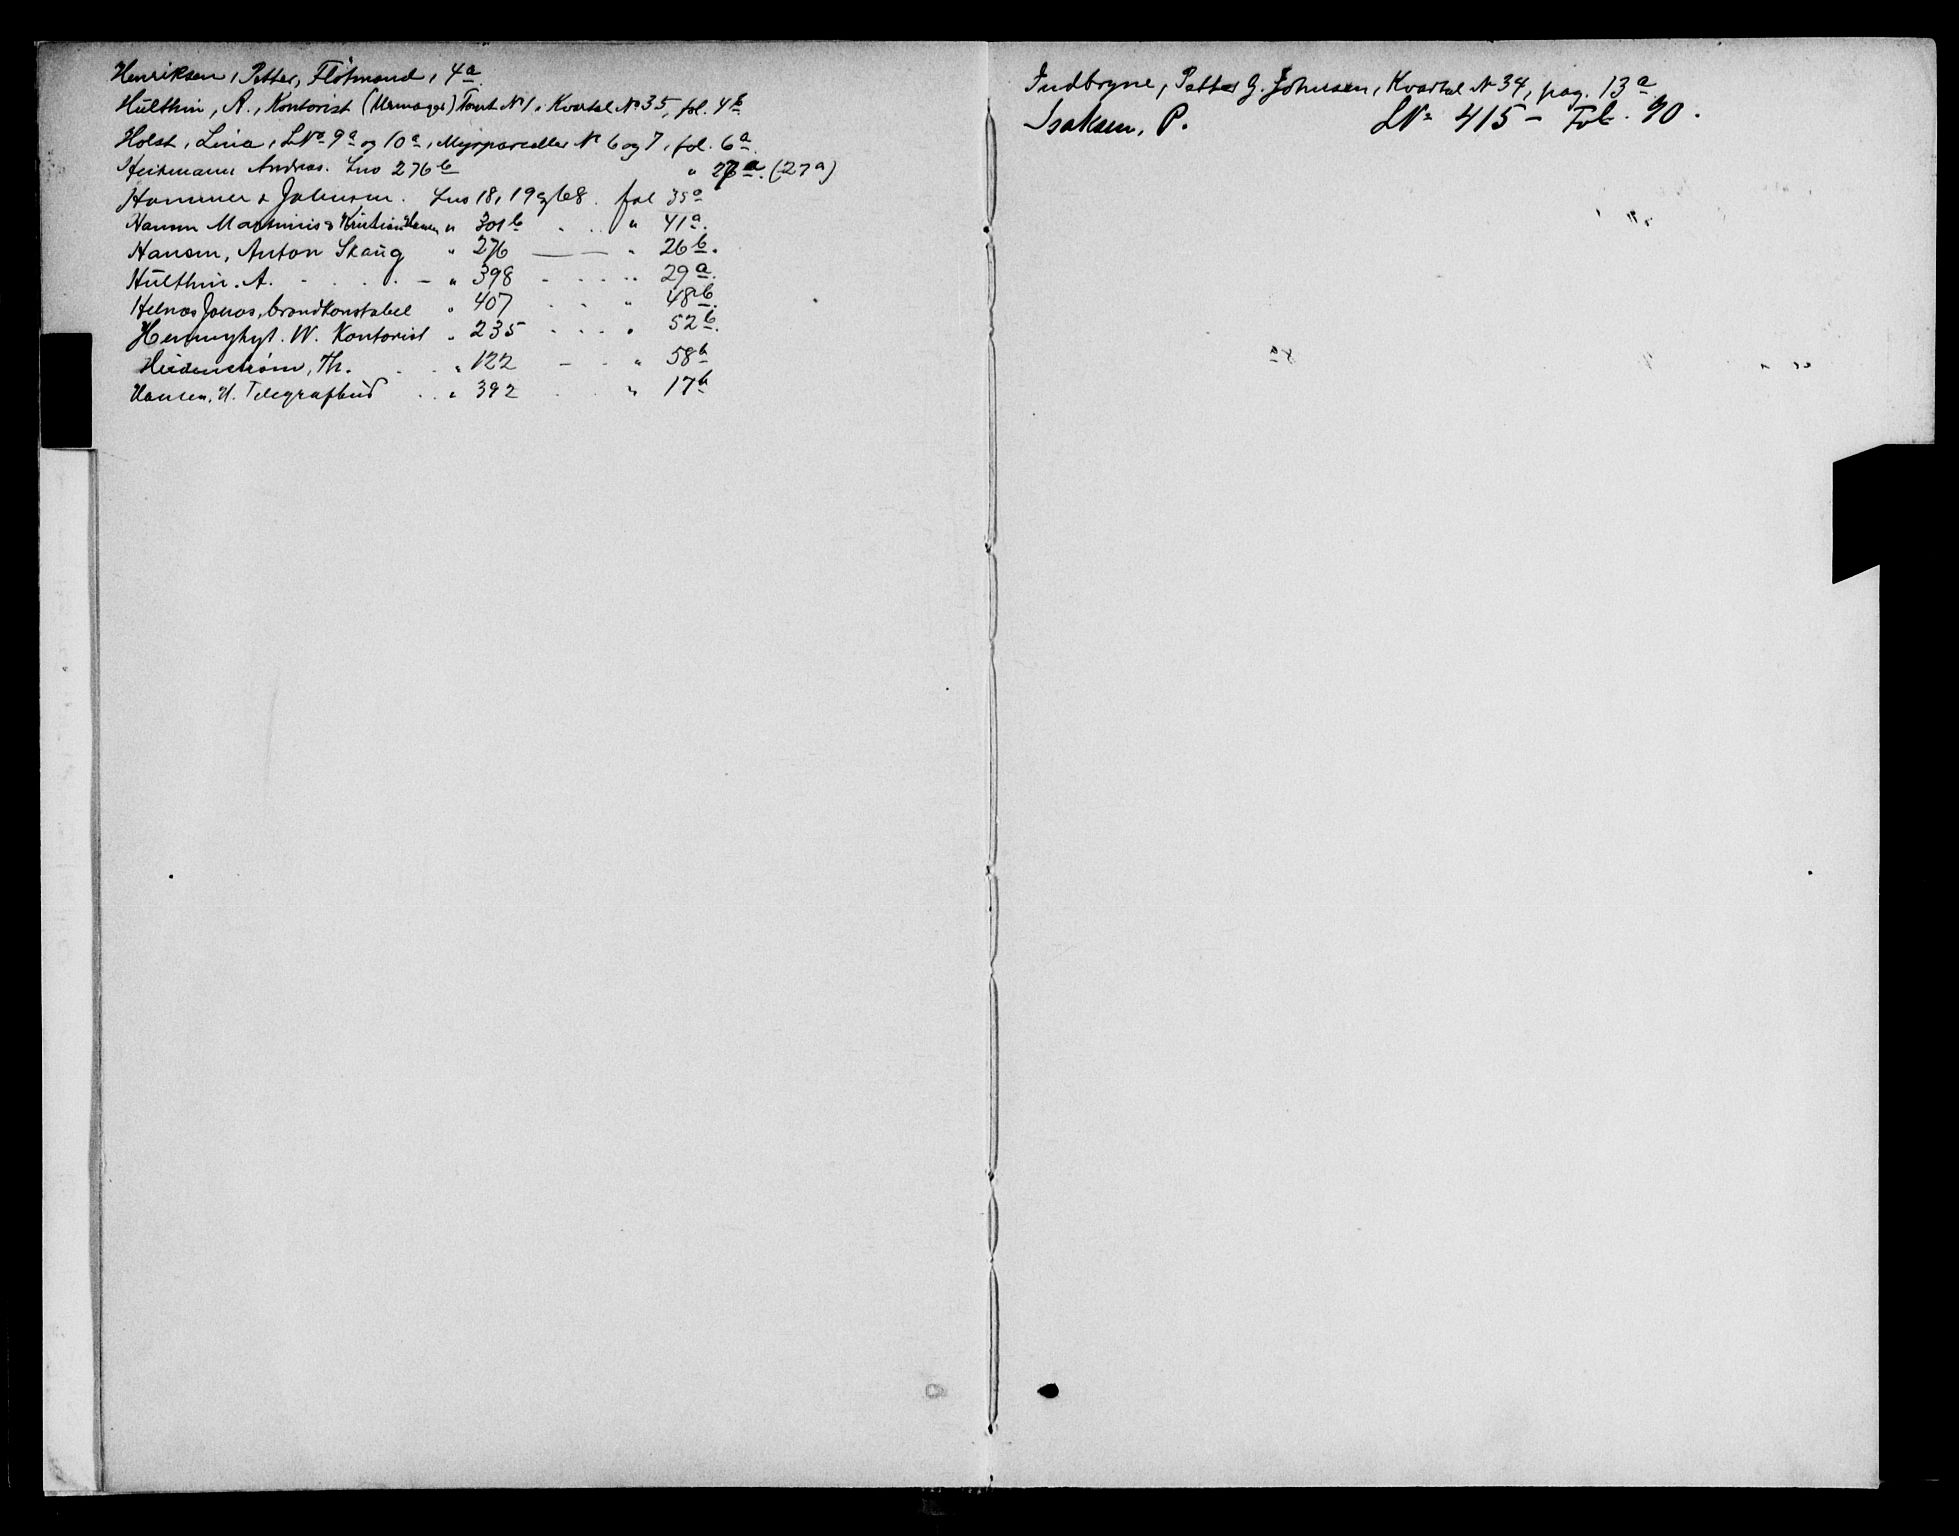 Henriksen, Petter, Flötmand, 4a
Hülthin, A., Kontorist Tomt No 1, Kvartal No 35, fol. 4b
Holst, Lina, LNo 9a og 10a, Myrparceller No 6 og 7, fol. 6a.
Heitmann Andreas. Lno 276b " 26a. (27a)
Hammer & Johnsen. Lno 18, 19 og 68. fol 35a
Hansen & Kristian Hansen " 301b . . . " 41a.
Hansen, Anton Skaug " 276 — " 26b.
Hülthin. A. . . . . — " 398 . . . . " 29a.
Helnæs Jonas, brandkonstabel " 407 . . . " 48b.
W. Kontorist " 235 . . . . " 52b.
Heidenstrøm, Th. . . " 122 — . . " 58b
Hansen, H. Telegrafbud . . " 392 . . " 17b
Indbryne, Petter G. Johnsen, Kvartal No 34, pag. 13a
Isaksen, P. LNo 415 - Fol. 90.